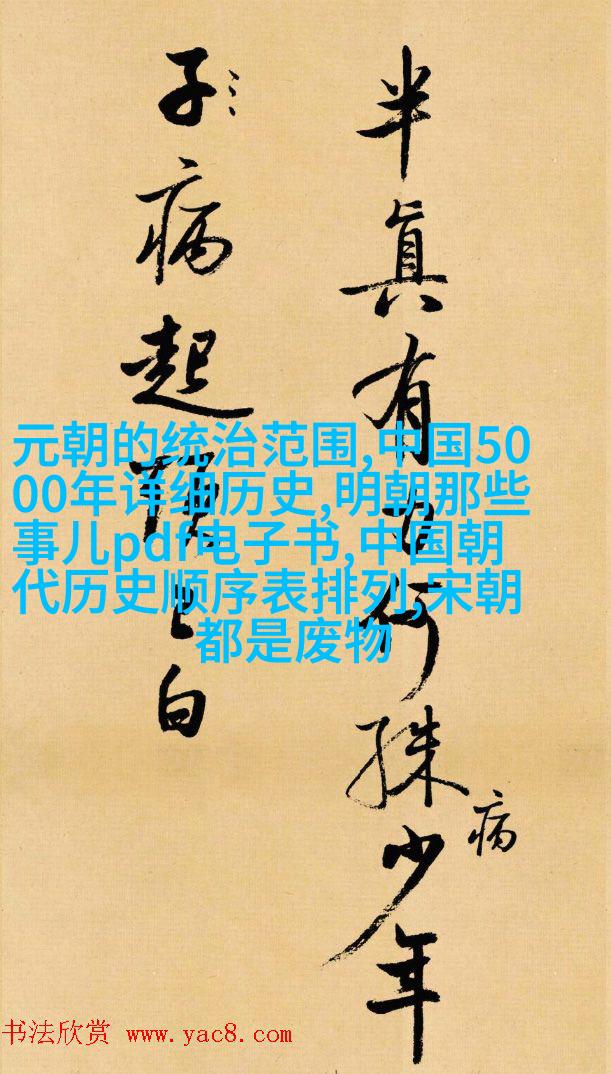 半眞有力何殊少年
病
子病起頭已白
元朝的统治范围,中国50
00年详细历史,明朝那些
事儿pdf电子书,中国朝
代历史顺序表排列,宋朝
都是废物
书法欣赏 www.yac8.com